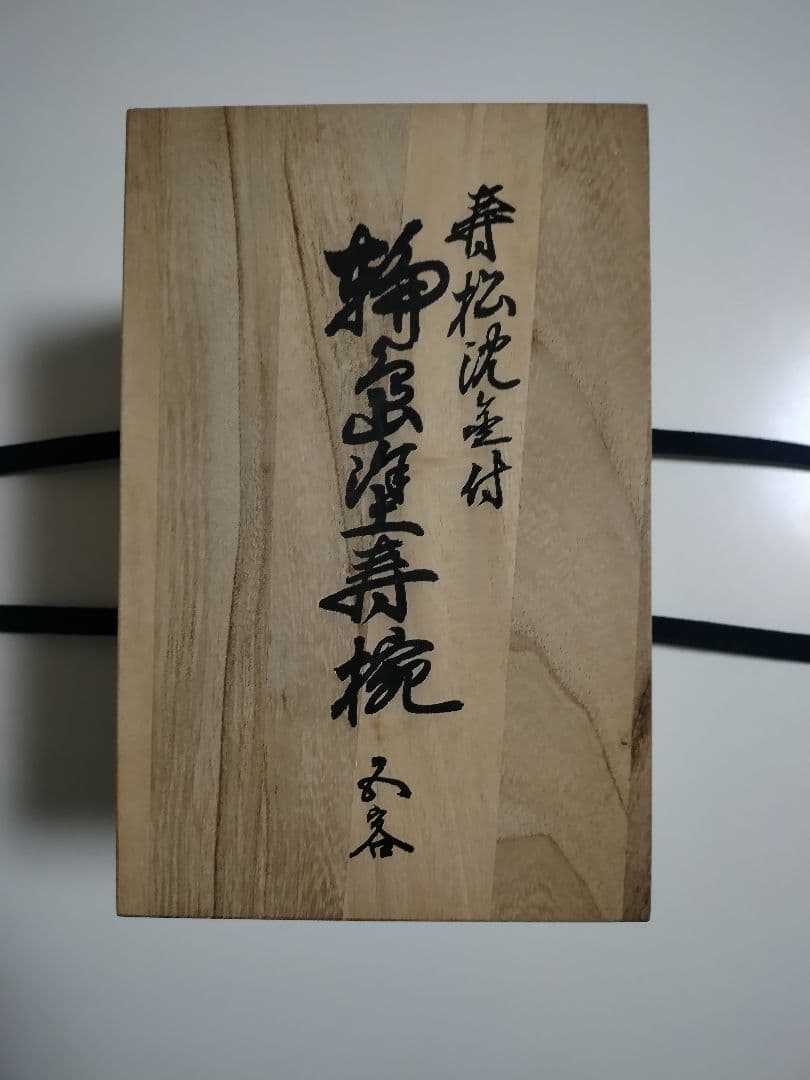 寿松沈金付
輪島塗寿椀
五客